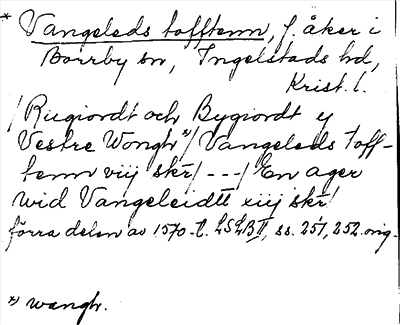 * Vangeleds tofftenn, f. åker i
Borrby sn, Ingelstads hd,
Krist. l.
/Rugiordt och Bygiordt y
Vestre Wongh*)/ Vangeleds Toff-
tenn viij skr/ - - - / En ager
wid Vangeleidtt xiij skr/
förra delen av 1570-t. LSLB II, ss. 251, 252. orig.
*) wangh.